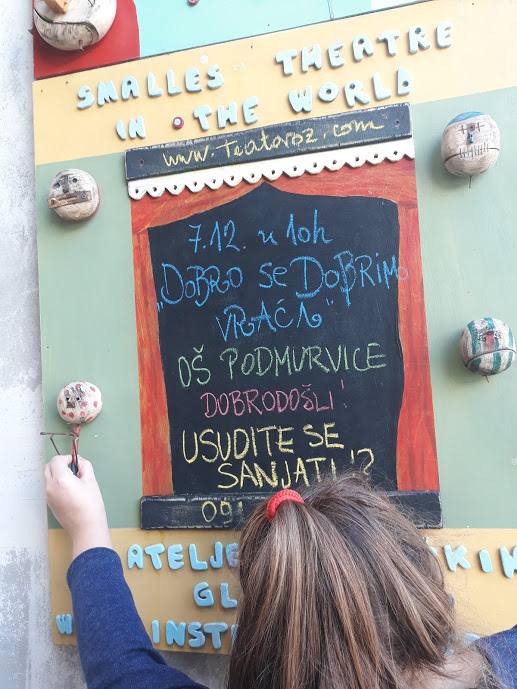 SMALLES THEATRE
IN THE WORLD
www.teatroz.com
7.12. u 10h
"DOBRO SE DOBRIM
VRAĆA"
OŠ PODMURVICE
DOBRODOŠLI!
USUDITE SE
SANJATI!?
091
ATELJE